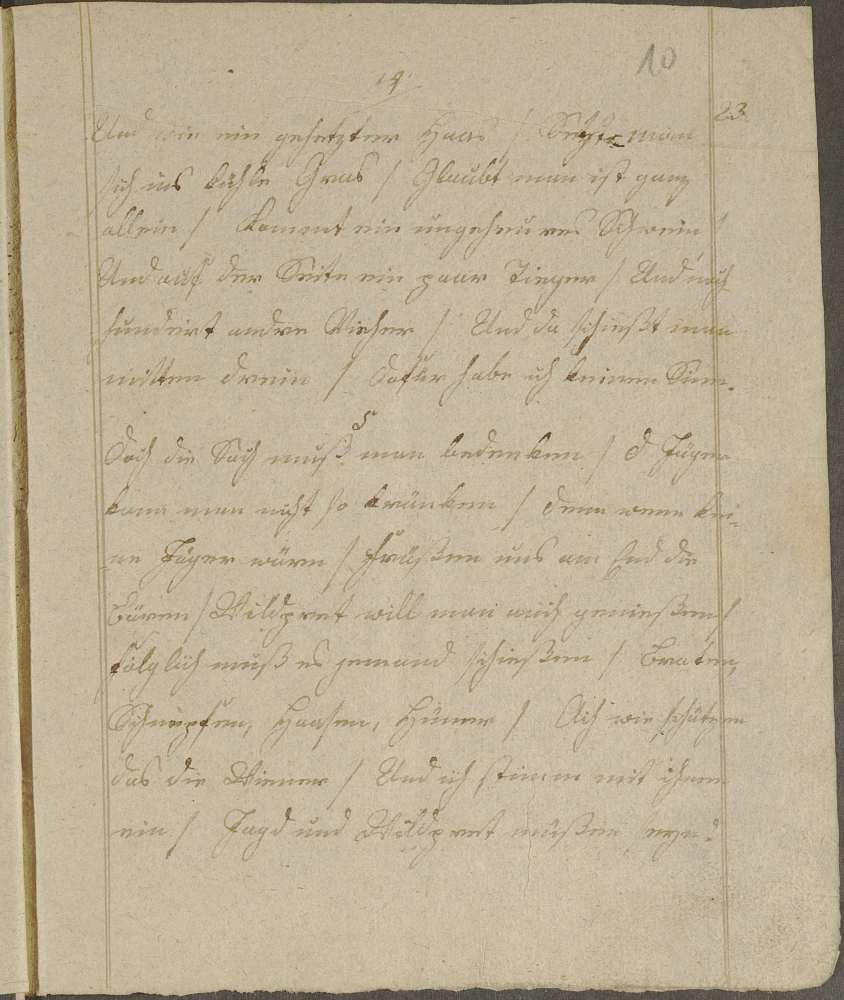 10
4.
23.
Und wie ein gehetzter Haas / Setzt man
sich ins kühle Gras / Glaubt man ist ganz
allein / Kommt ein ungeheures Schwein /
Und auf der Seite ein paar Tieger / Und noch
hundert andre Vieher / Und da schießt man
mitten drein / Dafür habe ich keinen Sinn.
5
Doch die Sach muß man bedenken / d Jäger
kann man nicht so kränken / denn wenn kei-
ne Jäger wärn / Fräßen uns am End die
Bären / Wildpret will man auch genießen /
folglich muß es jemand schießen / Braten,
Schnepfen, Haasen, Hüner / Ach wie schätzen
das die Wiener / Und ich stimm mit ihnen
ein / Jagd und Wildpret müßen seyn.